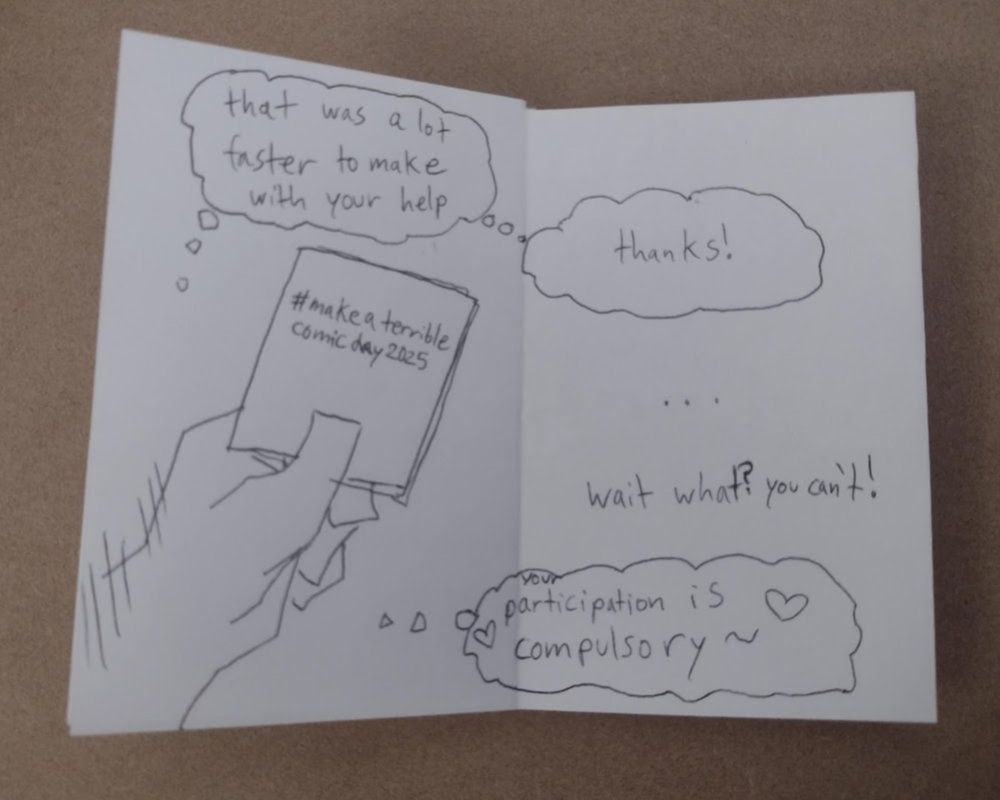 that was a lot
faster to make
with your help
thanks!
#makeaterrible
comicday2025
...
wait what? you can't!
your
participation is
compulsory ~